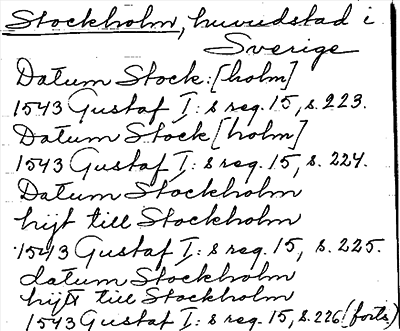 Stockholm, huvudstad i
Sverige
Datum Stock:[holm]
1543 Gustaf I: s reg. 15, s. 223.
Datum Stock[holm]
1543 Gustaf I: s reg. 15, s. 224.
Datum Stockholm
hijt till Stockholm
1543 Gustaf I: s reg. 15, s. 225.
datum Stockholm
hijt till Stockholm
1543 Gustaf I: s reg. 15, s. 226 (forts)